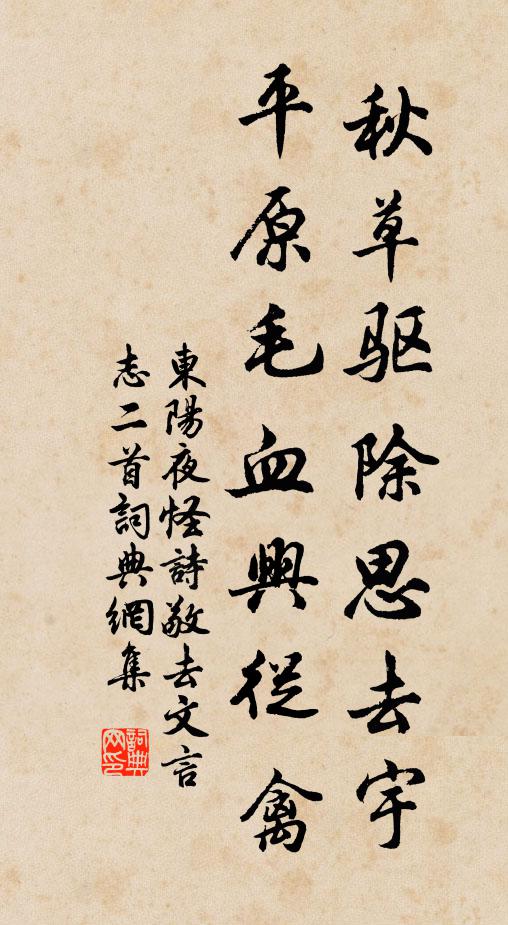 秋草驱除思去宇
平原毛血興從禽
東陽夜怪詩敬去文言
志二首詞典網集
詞典網印